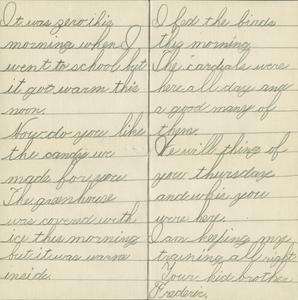 It was zero this
morning when I
went to school but
it got warm this
noon.
How do you like
the candy we
made for you
The greenhouse
was covered with
ice this morning
but it was warm
inside.
I fed the birds
this morning
The cardials were
here all day and
a good many of
them.
We will think of
you thursday
and whis you
were here.
I am keeping my
training all right
Your kid brother
Frederic.